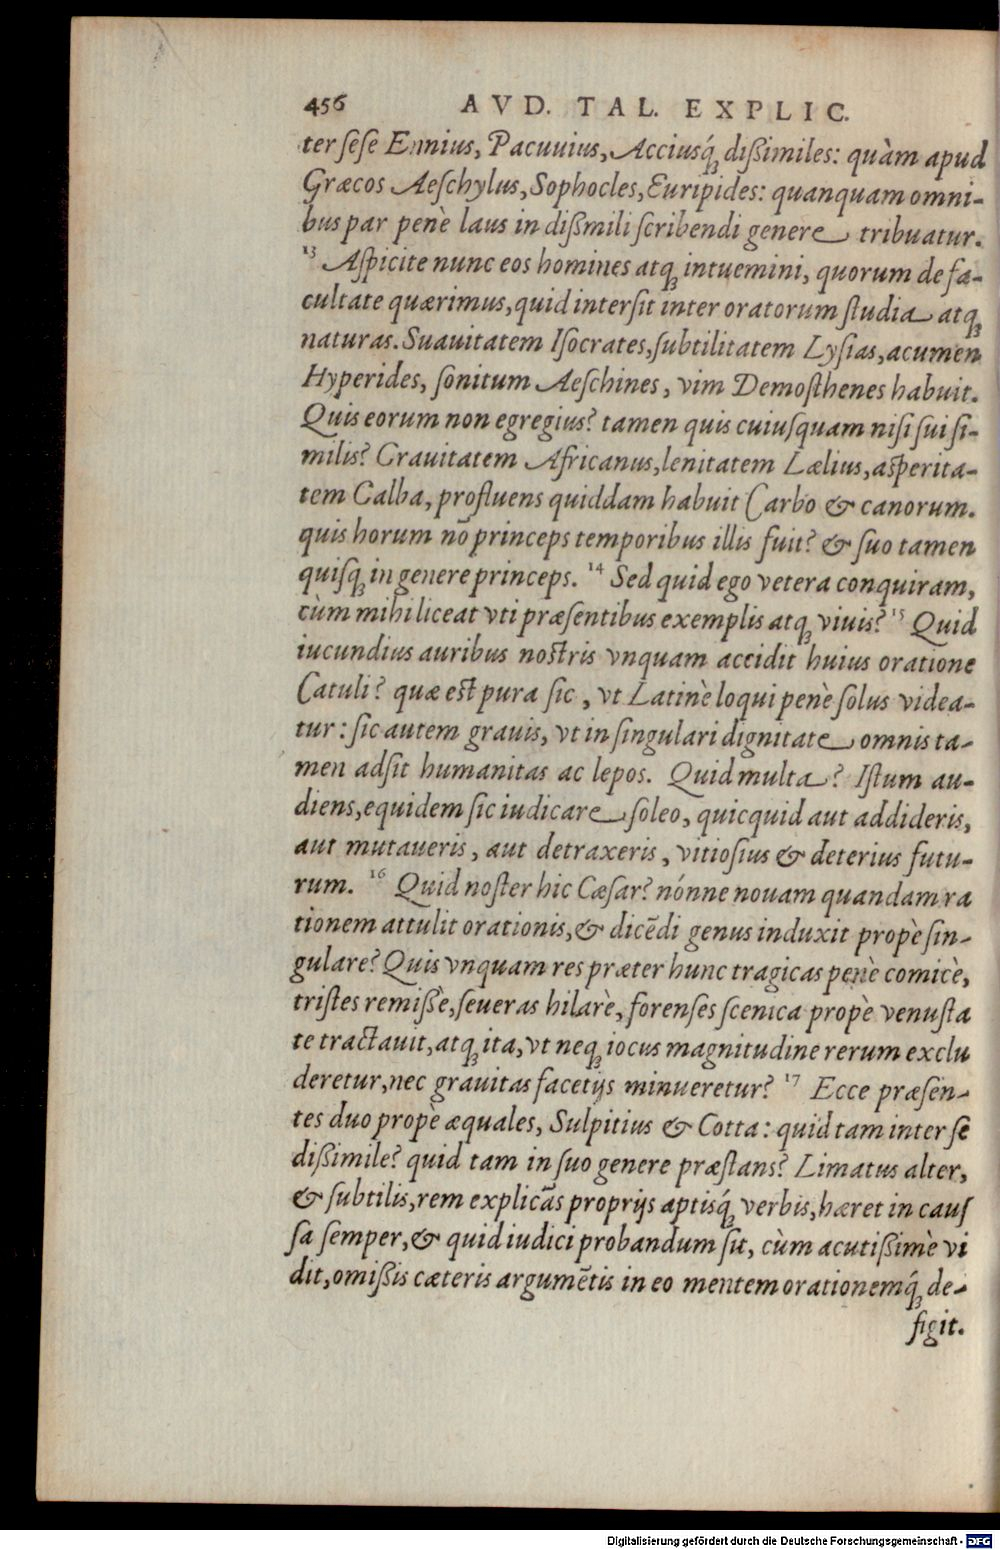 456 AVD. TAL. EXPLIC.
ter ſeſe Ennius, Pacuuius, Acciusq́ꝫ dißimiles: quàm apud
Græcos Aeſchylus, Sophocles, Euripides: quanquam omni-
bus par penè laus in dißmili ſcribendi genere tribuatur.
13 Aſpicite nunc eos homines atqꝫ intuemini, quorum de fa-
cultate quærimus, quid interſit inter oratorum ſtudia atqꝫ
naturas. Suauitatem Iſocrates, ſubtilitatem Lyſias, acumen
Hyperides, ſonitum Aeſchines, vim Demoſthenes habuit.
Quis eorum non egregius? tamen quis cuiuſquam niſi ſui ſi-
milis? Grauitatem Africanus, lenitatem Lælius, aſperita-
tem Galba, profluens quiddam habuit Carbo & canorum.
quis horum nō princeps temporibus illis fuit? & ſuo tamen
quiſqꝫ in genere princeps. 14 Sed quid ego vetera conquiram,
cùm mihi liceat vti præſentibus exemplis atqꝫ viuis? 15 Quid
iucundius auribus noſtris vnquam accidit huius oratione
Catuli? quæ eſt pura ſic, vt Latinè loqui penè ſolus videa-
tur: ſic autem grauis, vt in ſingulari dignitate omnis ta-
men adſit humanitas ac lepos. Quid multa? Iſtum au-
diens, equidem ſic iudicare ſoleo, quicquid aut addideris,
aut mutaueris, aut detraxeris, vitioſius & deterius futu-
rum. 16 Quid noſter hic Cæſar? nónne nouam quandam ra
tionem attulit orationis, & dicēdi genus induxit propè ſin-
gulare? Quis vnquam res præter hunc tragicas penè comicè,
triſtes remißè, ſeueras hilarè, forenſes ſcenica propè venuſta
te tractauit, atqꝫ ita, vt neqꝫ iocus magnitudine rerum exclu
deretur, nec grauitas facetijs minueretur? 17 Ecce præſen-
tes duo propè æquales, Sulpitius & Cotta: quid tam inter ſe
dißimile? quid tam in ſuo genere præſtans? Limatus alter,
& ſubtilis, rem explicās proprijs aptisq́ꝫ verbis, hæret in cauſ
ſa ſemper, & quid iudici probandum ſit, cùm acutißimè vi
dit, omißis cæteris argumētis in eo mentem orationemq́ꝫ de-
figit.
Digitalisierung gefördert durch die Deutsche Forschungsgemeinschaft - DFG